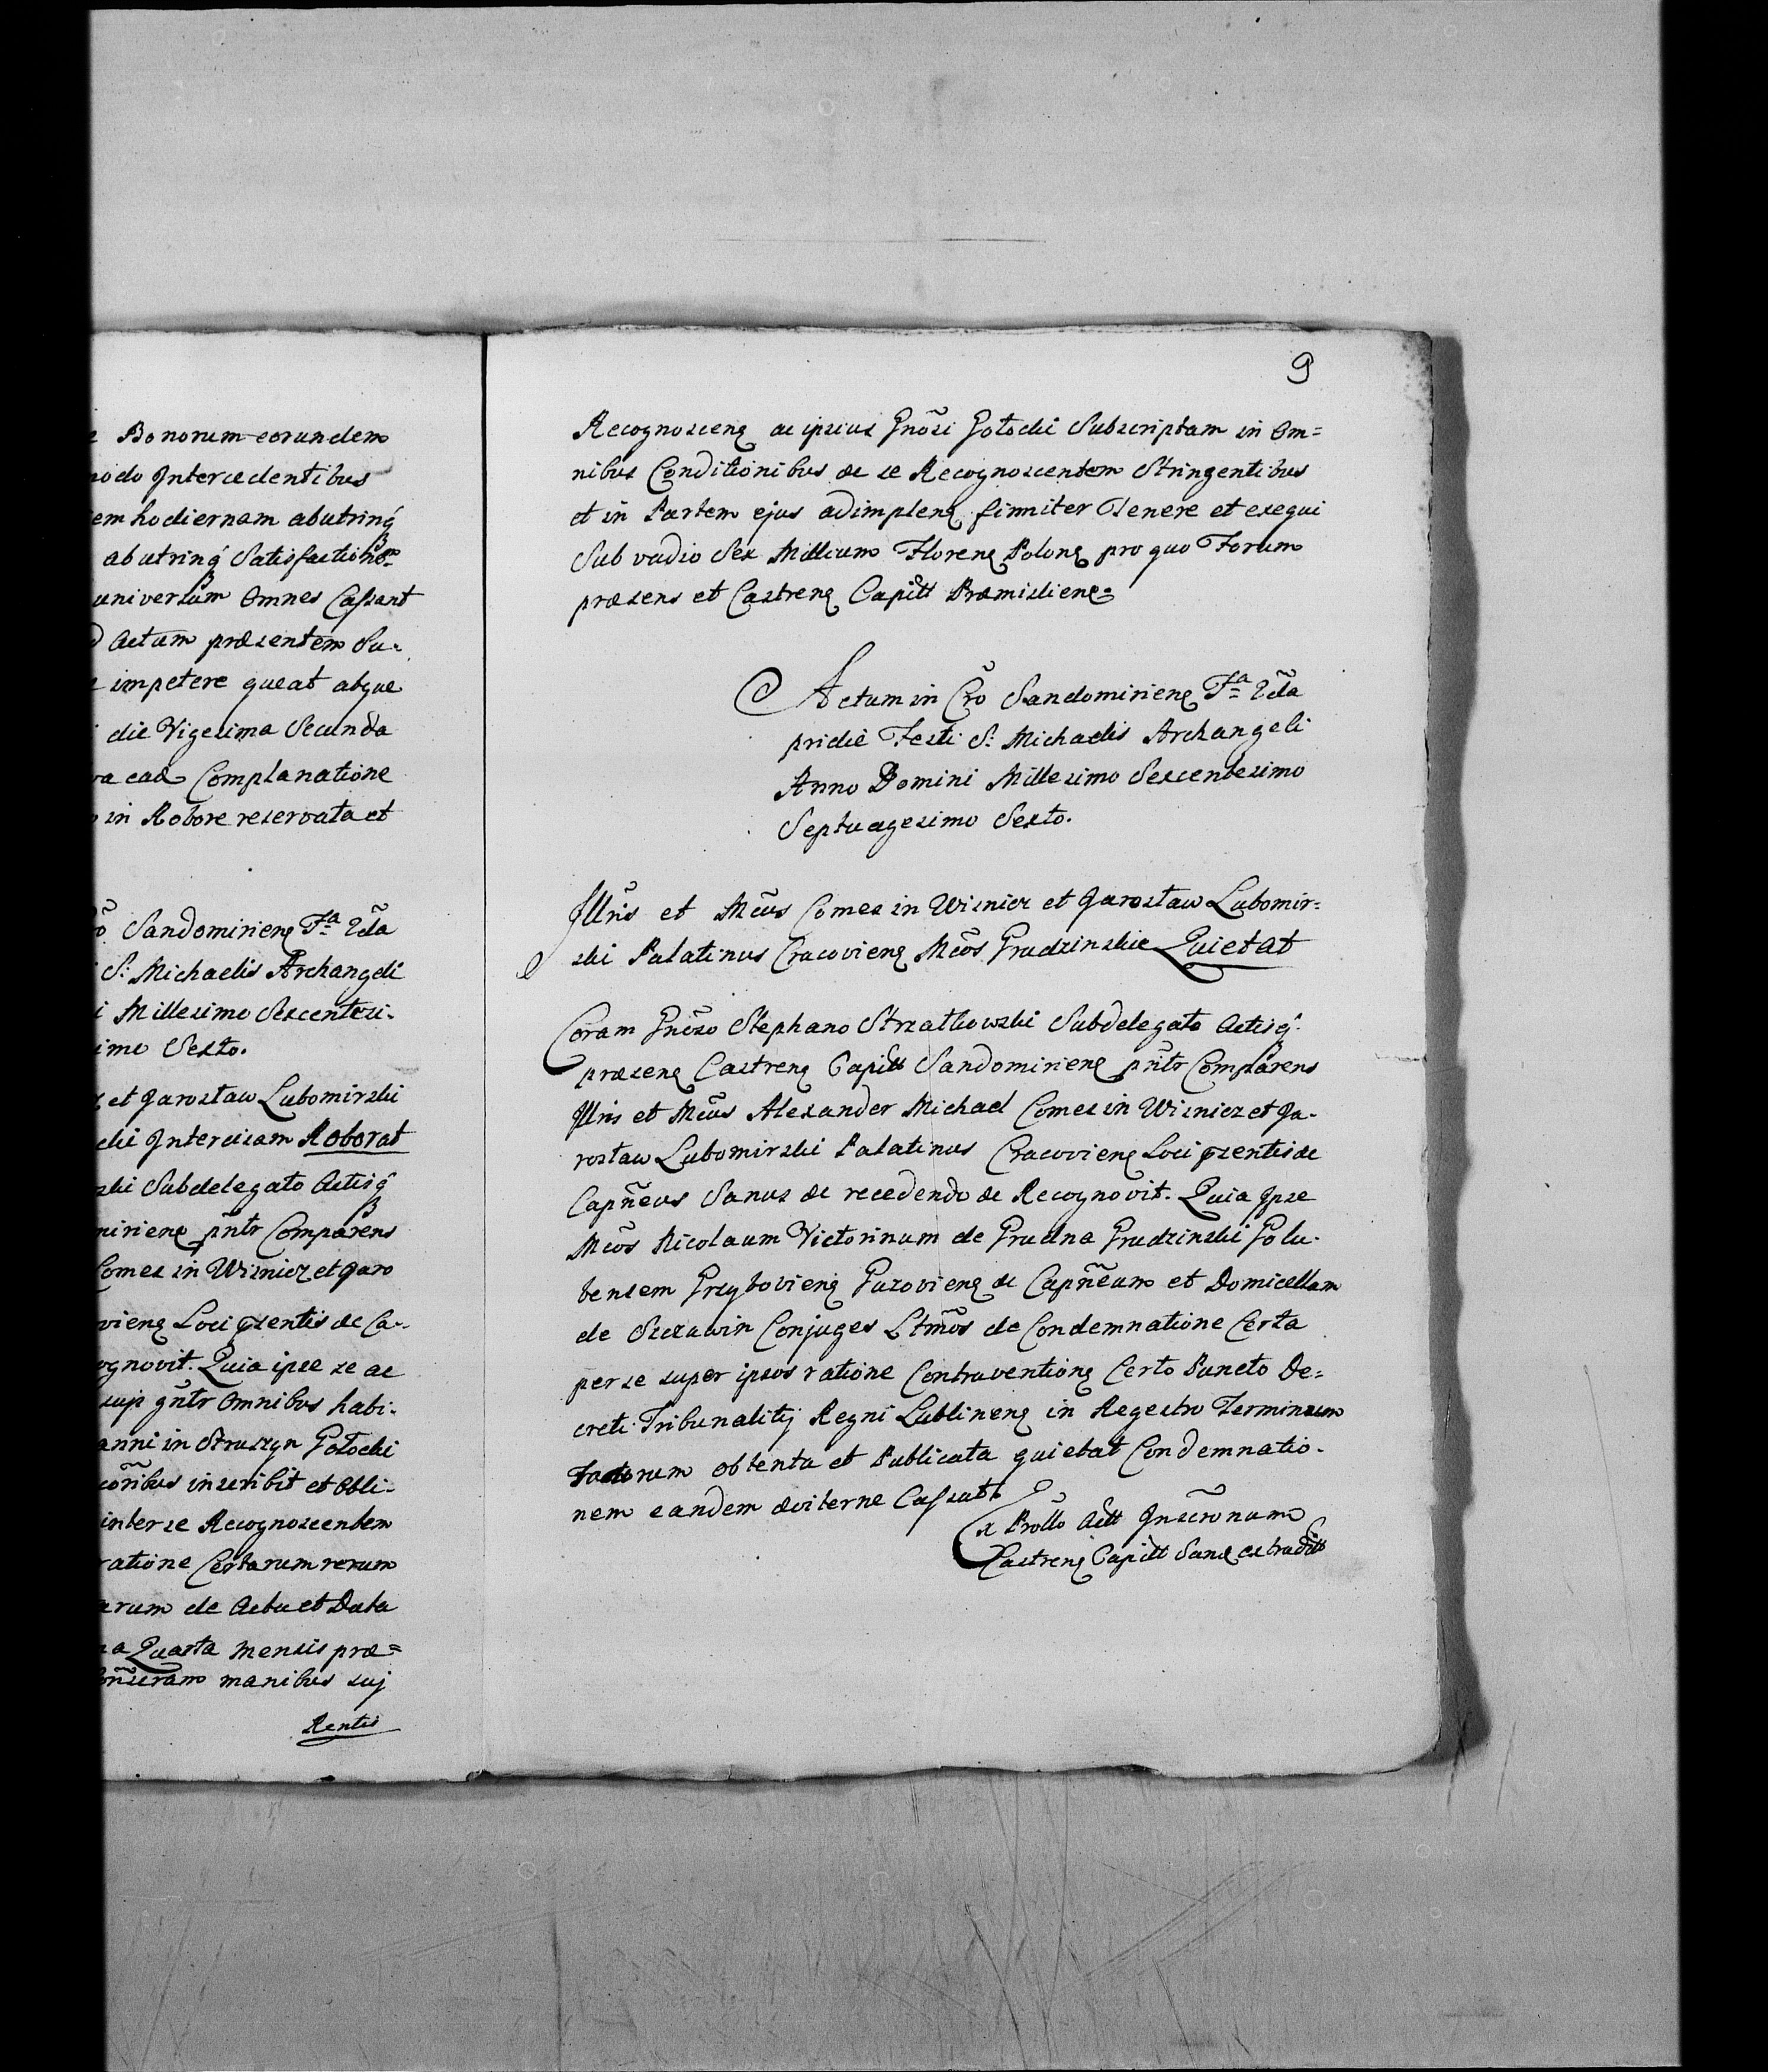 Bonorum eorundem
modo Intercedentibus
hodiernam abutrinq
abutrinq Satisfaction
universum Omnes Cassant
Actum præsentem Su-
impetere queat atque
die Vigesima Secunda
ead Complanatione
in Robore reservata et
Sandomirien Fa 2da
S: Michaelis Archangeli
Millesimo Sexcentesi-
Sexto.
et Jarosław Lubomirski
Intercisam Roborat
Subdelegato Actisq
pntr Comparens
Comes in Wisnicz et Jaro
Loci psentis ac Ca-
Quia ipse se ac
gntr Omnibus habi-
in Struszyn Potocki
inscribit et Obli-
inter se Recognoscentem
ratione Certarum rerum
de Actu et Data
Quarta mensis præ=
manibus suj
Rentis
9
Recognoscen ac ipsius Gnosi Potocki Subscriptam in Om=
nibus Conditionibus ac se Recognoscentem Stringentibus
et in Partem ejus adimplen firmiter Tenere et exequi
Sub vadio Sex Millium Floren Polon pro quo Forum
præsens et Castren Capitt Præmislien
Actum in Cro Sandomirien Fa 2da
pridie Festi S: Michaelis Archangeli
Anno Domini Millesimo Sexcentesimo
Septuagesimo Sexto.
Illris et Mcus Comes in Wisnicz et Jarosław Lubomir=
ski Palatinus Cracovien Mcos Grudzinskie Quietat
Coram Gnoso Stephano Strzałkowski Subdelegato Actisq
præsen Castren Capitt Sandomirien pntr Comparens
Illris et Mcus Alexander Michael Comes in Wisnicz et Ja-
rosław Lubomirski Palatinus Cracovien Loci psentis ac
Capneus Sanus ac recedendo ac Recognovit. Quia Ipse
Mcos Nicolaum Victorinum de Grudna Grudzinski Golu-
bensem Grzybovien Guzovien ac Capneum et Domicellam
de Szczawin Conjuges Ltmos de Condemnatione Certa
per se super ipsos ratione Contravention Certo Puncto De=
creti Tribunalitij Regni Lublinen in Regestro Terminum
Tactorum obtenta et Publicata quietat Condemnatio-
nem eandem æviterne Cassat.
Ex Protlo Actt Inscronum
Castren Capitt San extraditt